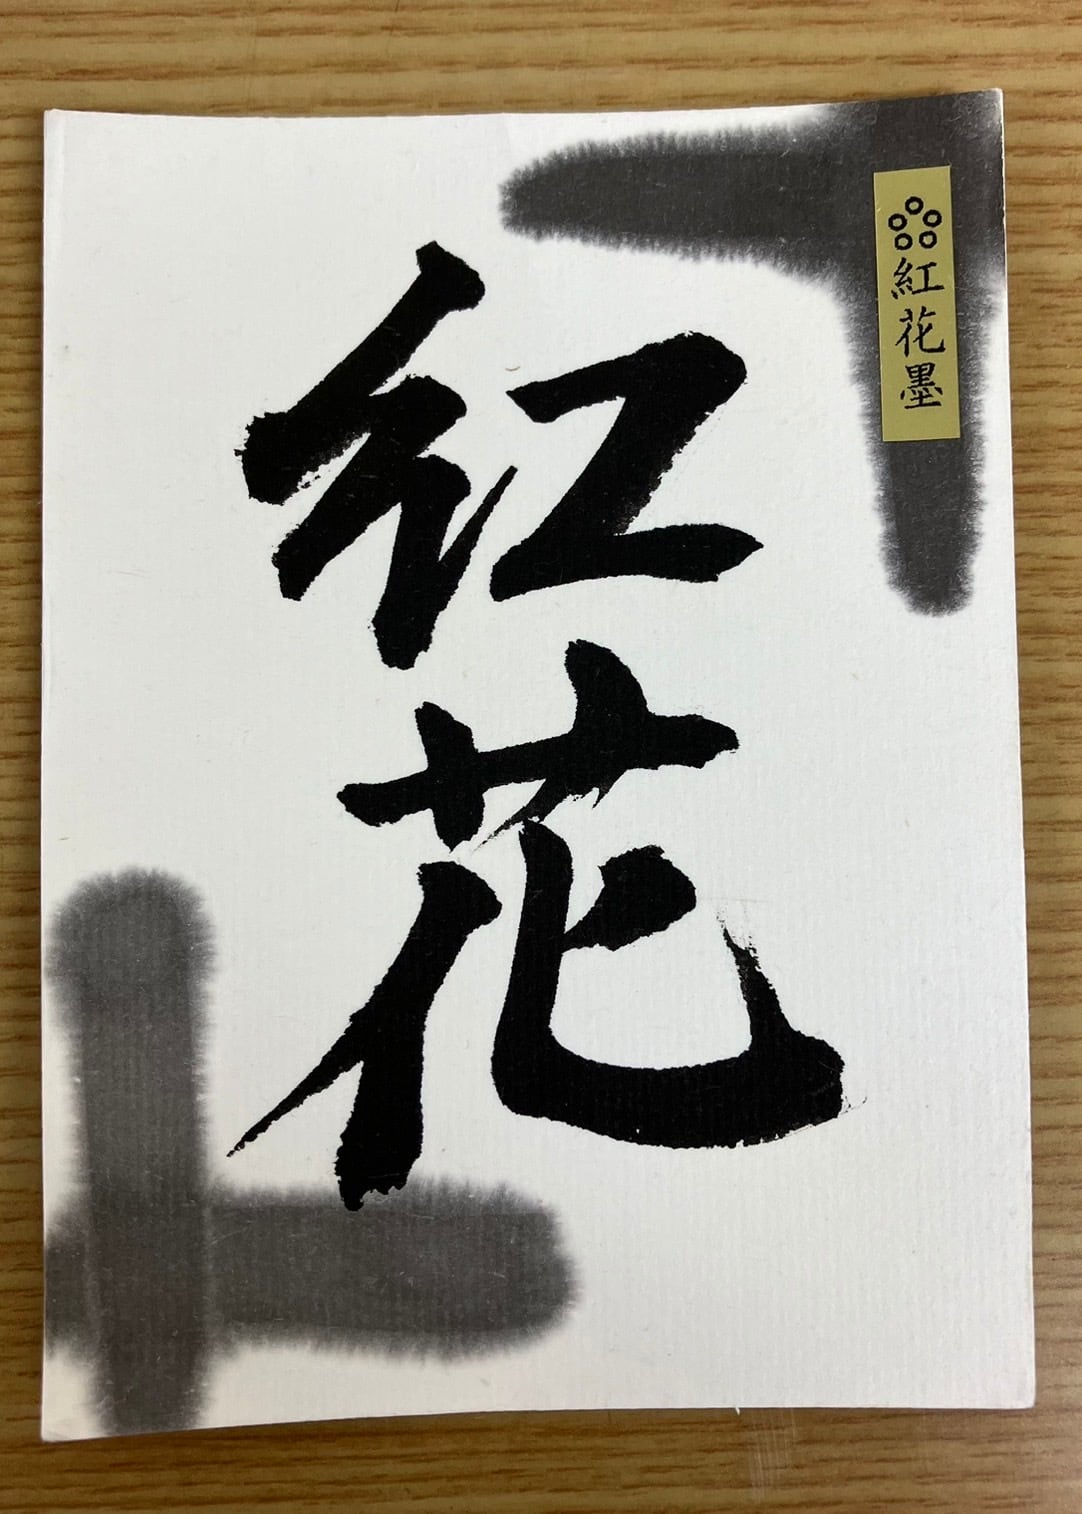 紅花墨
紅花